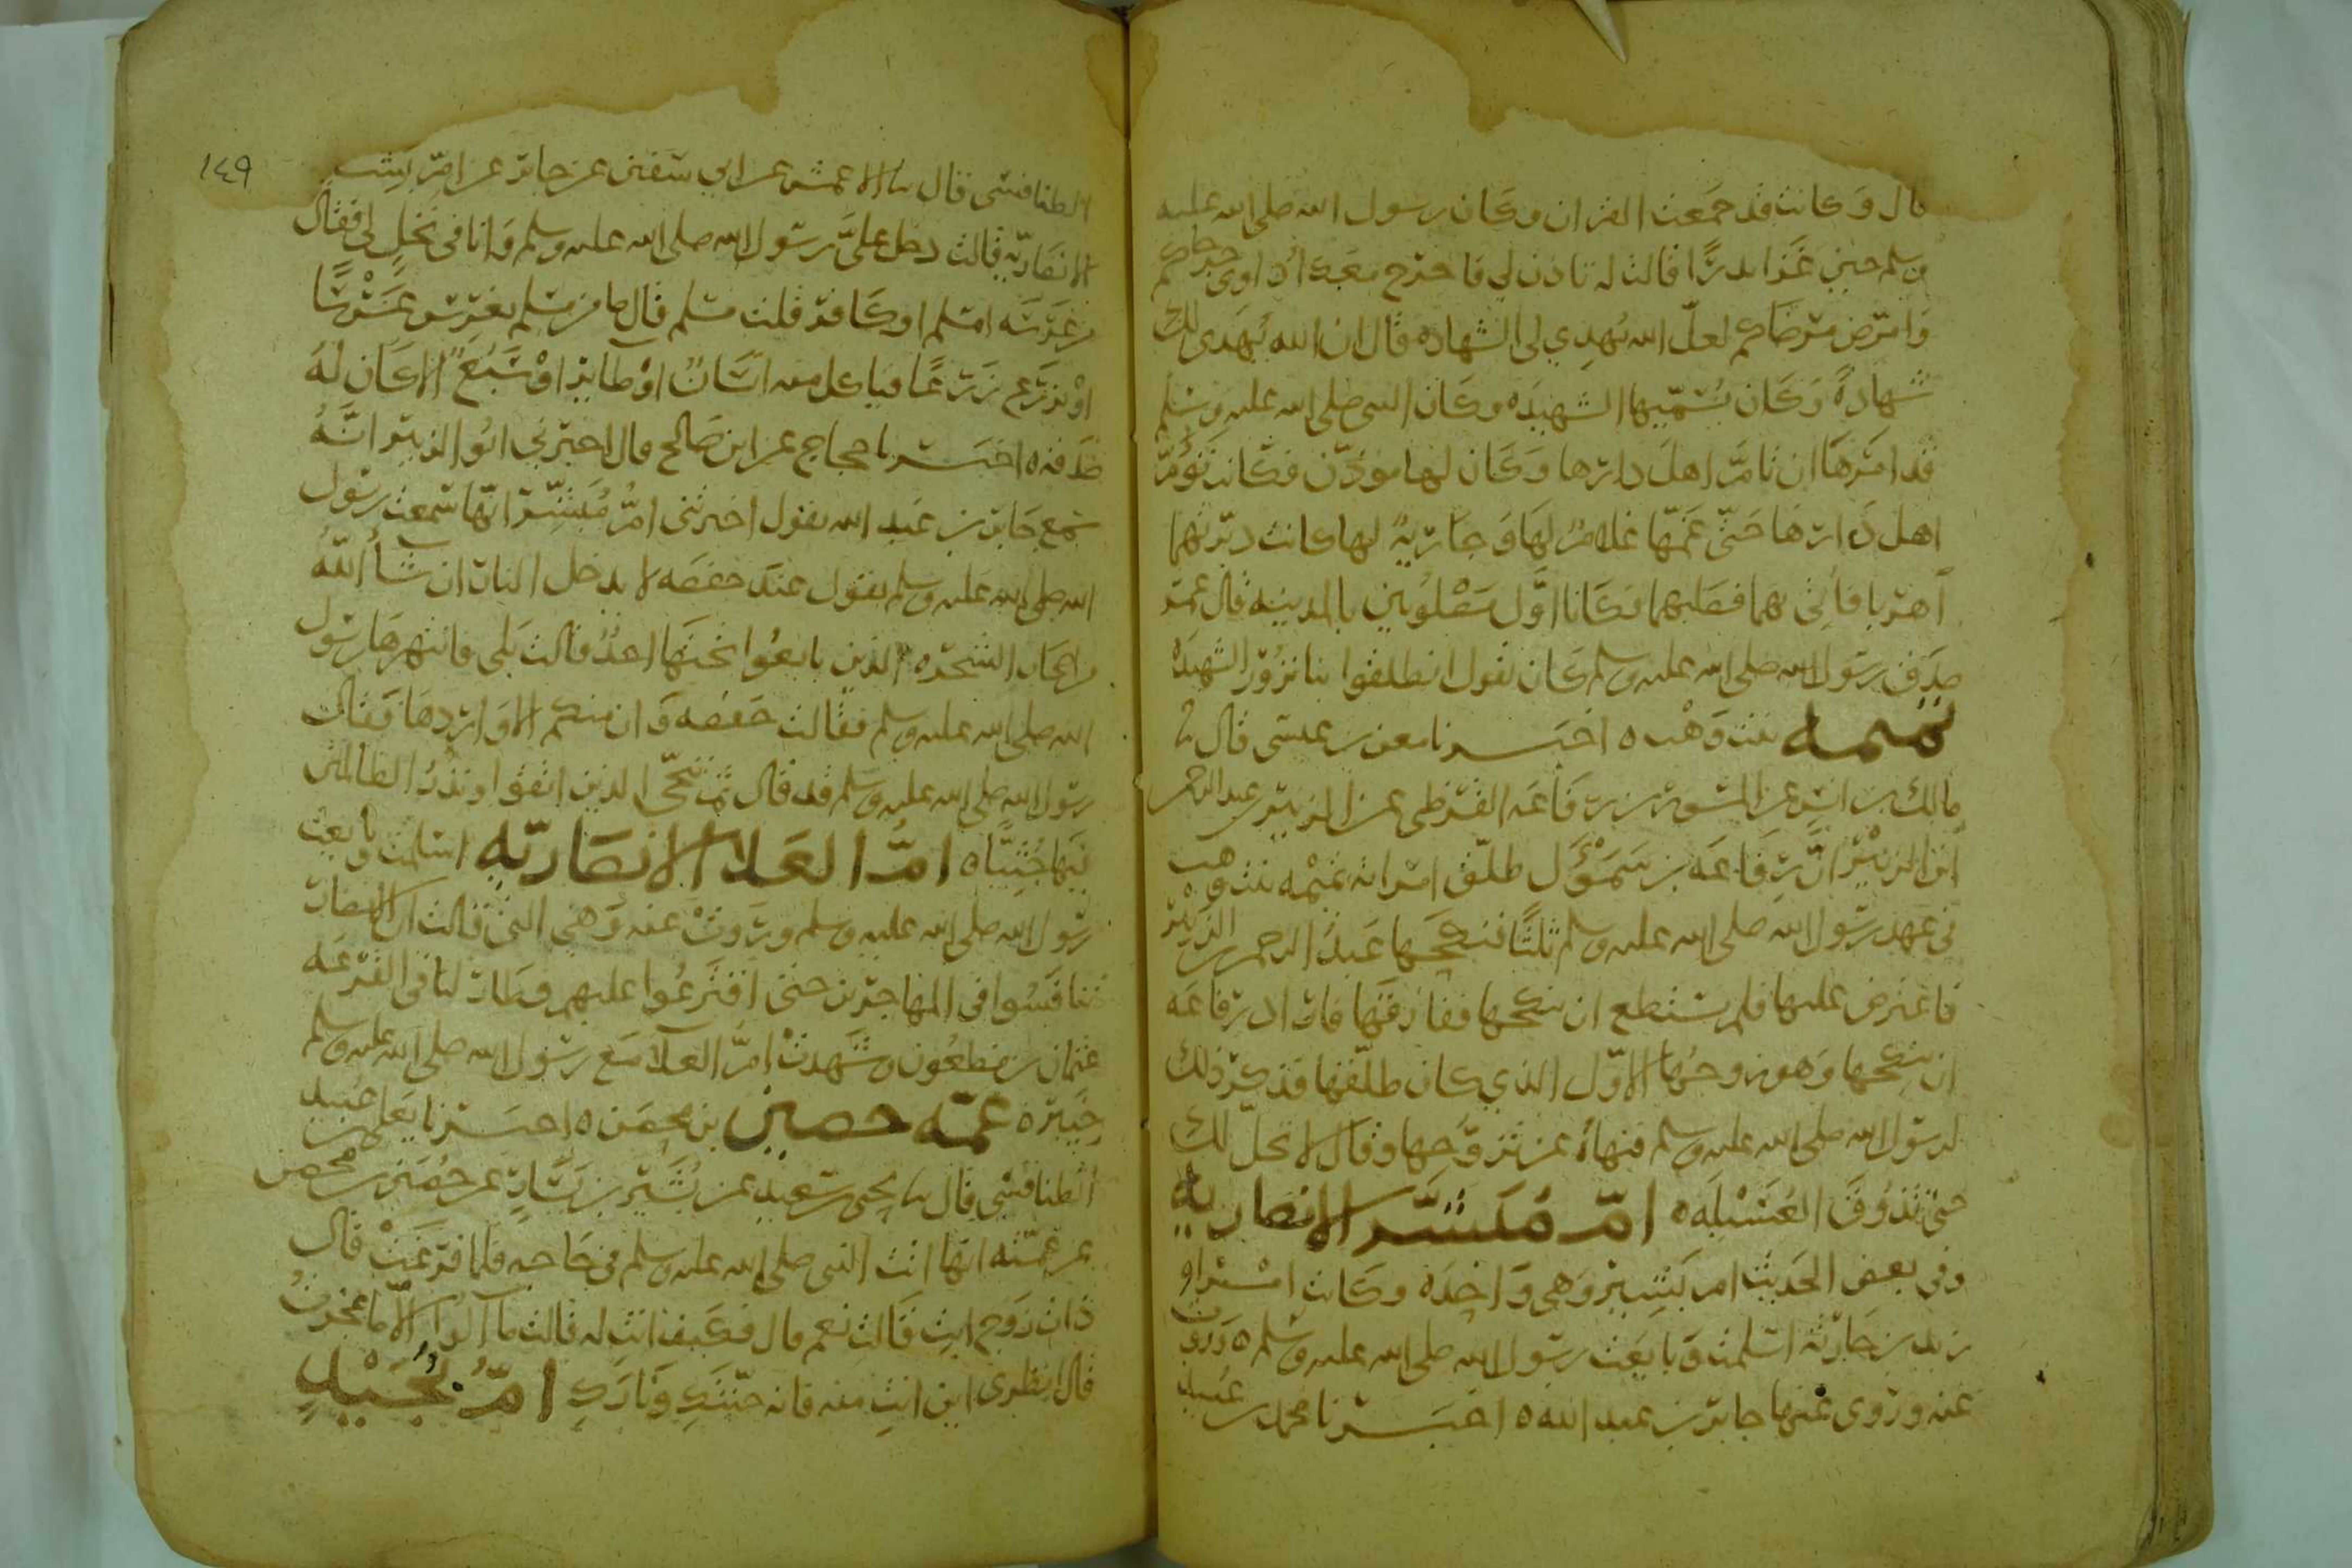 قال وكانت قد جمعت القران وكان رسول الله صلى الله عليه
وسلم حين غزا بدرًا قالت له تاذن لي فاخرج معك اداوى جرحاكم
وامرض مرضاكم لعل الله يهدي لي الشهادة قال ان الله يهدى لك
شهادةً وكان يسميها الشهيدة وكان النبي صلى الله عليه وسلم
قد امرها ان تامّ اهل دارها وكان لها موذن فكانت تؤمّ
اهل دارها حتى غمّها غلامٌ لها وجاريةٌ لها كانت دبّرتهما
هربا فاتي بهما فصلبهما فكانا اوّل مصلوبين بالمدينه قال عمر
صدق رسول الله صلى الله عليه وسلم كان يقول انطلقوا بنا نزور الشهيدة
تميمه بنت وهب ٥ اخبرنا معن بن عيسى قال نا
مالك بن انس عن المسور بن رفاعه القرظى عن الزبير بن عبد الرحمن
ابن الزبير انّ رفاعه بن سموأل طلّق امراته تميمه بنت وهب
في عهد رسول الله صلى الله عليه وسلم ثلثًا فنكحها عبد الرحمن بن الزبير
فاعترض عليها فلم يستطع ان ينكحها ففارقها فاراد رفاعه
ان ينكحها وهو زوجها الاوّل الذي كان طلّقها فذكر ذلك
لرسول الله صلى الله عليه وسلم فنهاه عن تزوّجها وقال لا تحلّ لك
حتى تذوق العسيله ٥ امّ مبشّر الانصاريه
وفي بعض الحديث ام بشير وهي واحدة وكانت امراه
زيد بن حارثه اسلمت وبايعت رسول الله صلى الله عليه وسلم ٥ وروت
عنه وروى عنها جابر بن عبد الله ٥ اخبرنا محمد بن عبيد
١٤٩
الطنافسى قال نا الاعمش عن ابي سفين عن جابر عن امّ بشر
الانصاريّه قالت دخل عليّ رسول الله صلى الله عليه وسلم وانا في نخلٍ لي فقال
من غرسه امسلم او كافر قلت مسلم قال ما من مسلم يغرس غرسًا
او يزرع زرعًا فياكل منه انسانٌ او طايرٌ او سبعٌ الا كان له
صدقه ٥ اخبرنا حجاج عن ابن صالح قال اخبرني ابو الزبير انّه
سمع جابر بن عبد الله يقول اخبرتنى امّ مبشّر انّها سمعت رسول
الله صلى الله عليه وسلم يقول عند حفصه لا يدخل النار ان شآ الله
من اصحاب الشجره الذين بايعوا تحتها احدٌ قالت بلى فانتهرها رسول
الله صلى الله عليه وسلم فقالت حفصه وان منكم الا واردها فقال
رسول الله صلى الله عليه وسلم قد قال ثم ننجّي الذين اتقوا ونذر الظالمين
فيها جثيًّا ٥ امّ العلا الانصاريّه اسلمت وبايعت
رسول الله صلى الله عليه وسلم وروت عنه وهي التى قالت ان الانصار
تنافسوا في المهاجرين حتى اقترعوا عليهم فطار لنا في القرعه
عثمان بن مظعون وشهدت امّ العلآ مع رسول الله صلى الله عليه وسلم
خيبر ٥ عمّه حصين بن محصن ٥ اخبرنا يعلى بن عبيد
الطنافسى قال نا يحيى بن سعيد عن بشير بن يسار عن حصين بن محصن
عن عمّته انها اتت النبي صلى الله عليه وسلم في حاجه فلما فرغت قال
اذات زوج انتِ قالت نعم قال فكيف انتِ له قالت ما آلوا الا ما عجزت
قال انظرى اين انتِ منه فانه جنّتكِ وناركِ امّ بجيدٍ